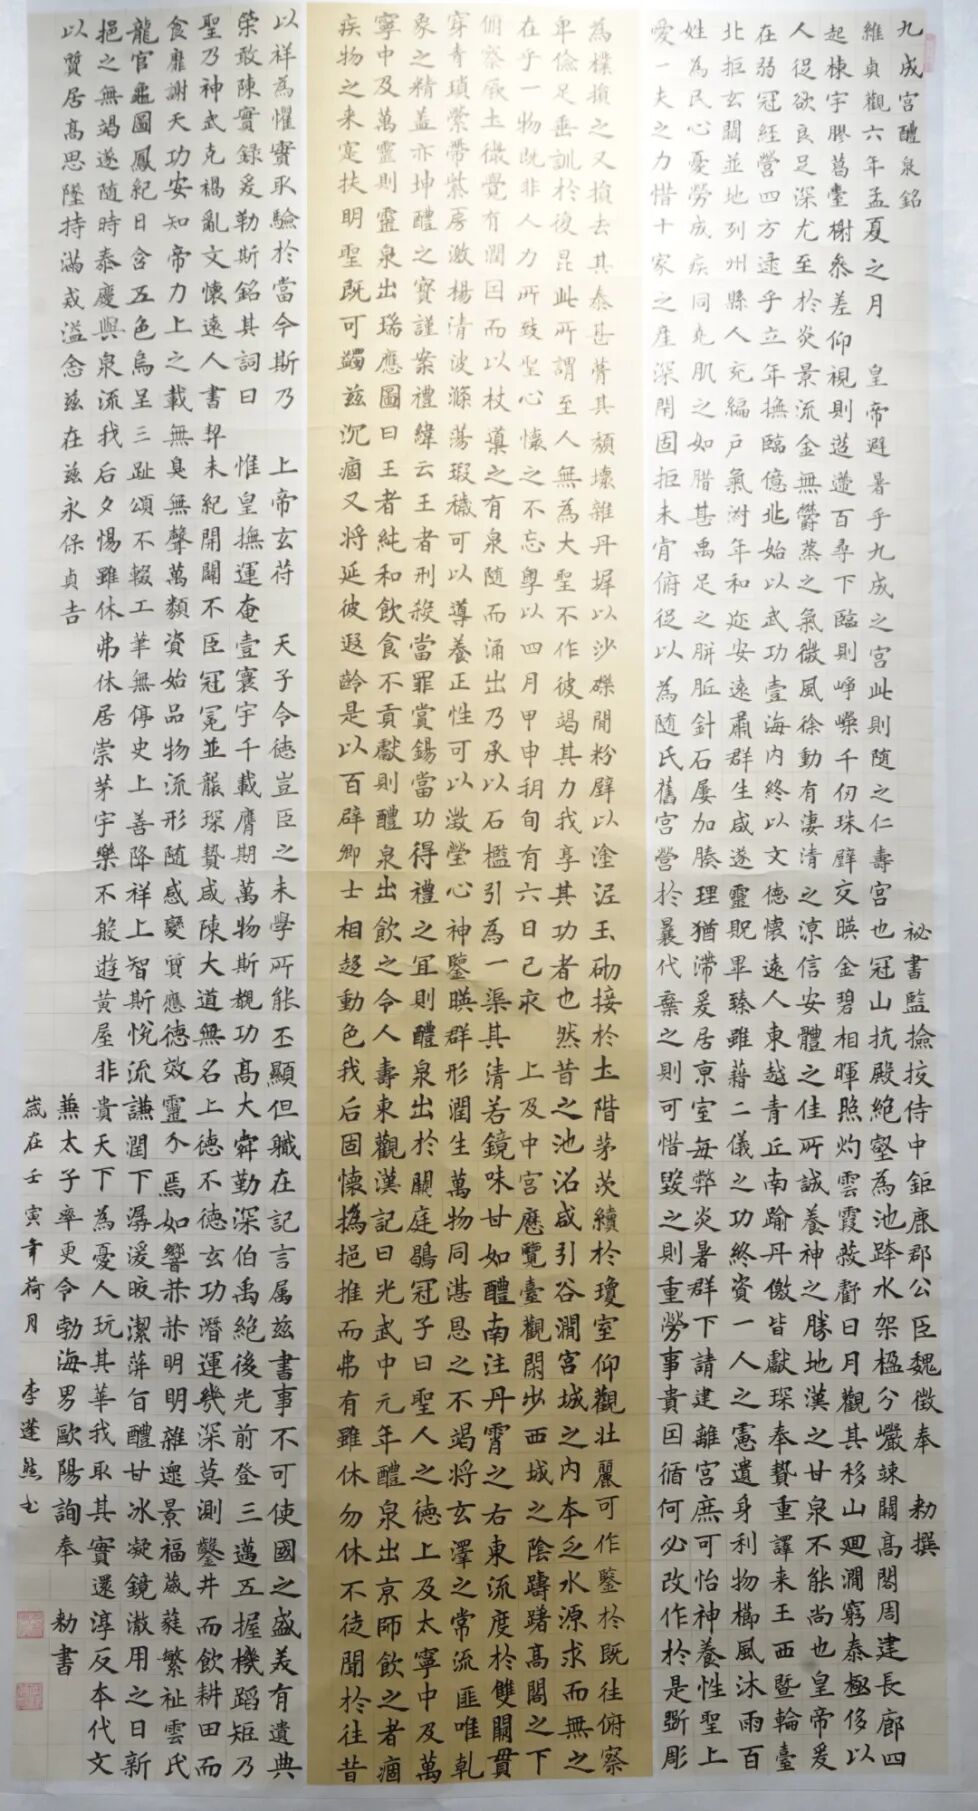 九成宮醴泉銘 祕書監撿挍侍中鉅鹿郡公臣魏徵奉 勅撰
維貞觀六年孟夏之月 皇帝避暑乎九成之宮此則随之仁壽宮也冠山抗殿絕壑為池跨水架楹分巖竦闕高閣周建長廊四
起棟宇膠葛臺榭叅差仰視則迢遰百尋下臨則崢嶸千仞珠璧交暎金碧相暉照灼雲霞蔽虧日月觀其移山迴澗窮泰極侈以
人從欲良足深尤至於炎景流金無鬱蒸之氣微風徐動有淒清之涼信安體之佳所誠養神之勝地漢之甘泉不能尚也皇帝爰
在弱冠經營四方逮乎立年撫臨億兆始以武功壹海內終以文德懷遠人東越青丘南踰丹儌皆獻琛奉贄重譯来王西暨輪臺
北拒玄闕並地列州縣人充編戶氣淑年和迩安遠肅群生咸遂靈貺畢臻雖藉二儀之功終資一人之慮遺身利物櫛風沐雨百
姓為民心憂勞成疾同尭肌之如腊甚禹足之胼胝針石屢加腠理猶滯爰居京室每弊炎暑群下請建離宮庶可怡神養性聖上
愛一夫之力惜十家之産深閇固拒未肯俯從以為随氏舊宮營於曩代棄之則可惜毀之則重勞事貴因循何必改作於是斲彫
為樸損之又損去其泰甚葺其頹壞雜丹墀以沙礫間粉壁以塗泥玉砌接於土階茅茨續於瓊室仰觀壯麗可作鑒於既往俯察
卑儉足垂訓於後昆此所謂至人無為大聖不作彼竭其力我享其功者也然昔之池沼咸引谷澗宮城之內本乏水源求而無之
在乎一物既非人力所致聖心懷之不忘粵以四月甲申朔旬有六日己亥 上及中宮歷覽臺觀閑步西城之陰躊躇高閣之下
俯察厥土微覺有潤因而以杖導之有泉随而涌出乃承以石檻引為一渠其清若鏡味甘如醴南注丹霄之右東流度於雙闕貫
穿青瑣縈帶紫房激楊清波滌蕩瑕穢可以導養正性可以澂瑩心神鑒暎群形潤生萬物同湛恩之不竭將玄澤之常流匪唯乾
象之精盖亦坤醴之寳謹案禮緯云王者刑殺當罪賞錫當功得禮之宜則醴泉出於闕庭鶡冠子曰聖人之德上及太寧中及萬
寧中及萬靈則靈泉出瑞應圖曰王者純和飲食不貢獻則醴泉出飲之令人壽東觀漢記曰光武中元年醴泉出京師飲之者痼
疾物之来寔扶明聖既可蠲茲沉痼又將延彼遐齡是以百辟卿士相趨動色我后固懷撝挹推而弗有雖休勿休不徒聞於往昔
以祥為懼實取驗於當今斯乃 上帝玄符 天子令德豈臣之末學所能丕顯但職在記言属茲書事不可使國之盛美有遺典
榮敢陳實録爰勒斯銘其詞曰 惟皇撫運奄壹寰宇千載膺期萬物斯覩功高大舜勤深伯禹絕後光前登三邁五握機蹈矩乃
聖乃神武克禍亂文懷遠人書契未紀開闢不臣冠冕並襲琛贄咸陳大道無名上德不德玄功潛運幾深莫測鑿井而飲耕田而
食靡謝天功安知帝力上之載無臭無聲萬類資始品物流形随感變質應德效靈介焉如響赫赫明明雜遝景福葳蕤繁祉雲氏
龍官龜圖鳳紀日含五色烏呈三趾頌不輟工筆無停史上善降祥上智斯悅流謙潤下潺湲皎潔蓱旨醴甘冰凝鏡澈用之日新
挹之無竭遂随時泰慶與泉流我后夕惕雖休弗休居崇茅宇樂不般遊黃屋非貴天下為憂人玩其華我取其實還淳反本代文
以質居高思墜持滿戒溢念茲在茲永保貞吉 兼太子率更令勃海男歐陽詢奉 勅書
歲在壬寅年荷月 李蓬然书